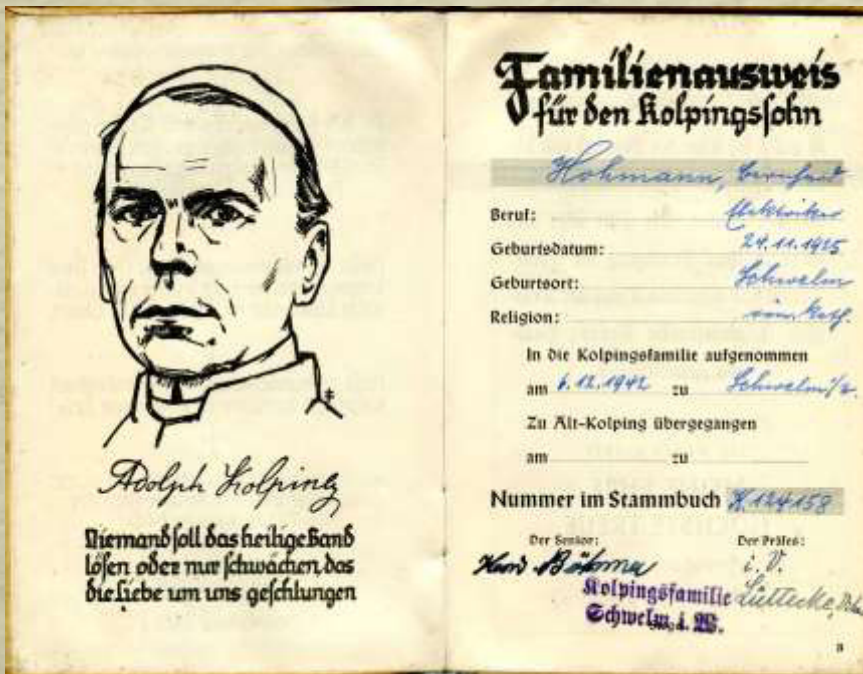 Adolph Kolping
Niemand soll das heilige Band
lösen oder nur schwächen, das
die Liebe um uns geschlungen
Familienausweis
für den Kolpingssohn
Hohmann, Bernhard
Beruf: Elektriker
Geburtsdatum: 24.11.1925
Geburtsort: Schwelm
Religion: röm. kath.
In die Kolpingsfamilie aufgenommen
am 6.12.1942 zu Schwelm i/W.
Zu Alt-Kolping übergegangen
am zu
Nummer im Stammbuch K.124158
Der Senior: Der Präses:
Böhmer i. V.
Kolpingsfamilie Lüttecke,
Schwelm i. W.
3